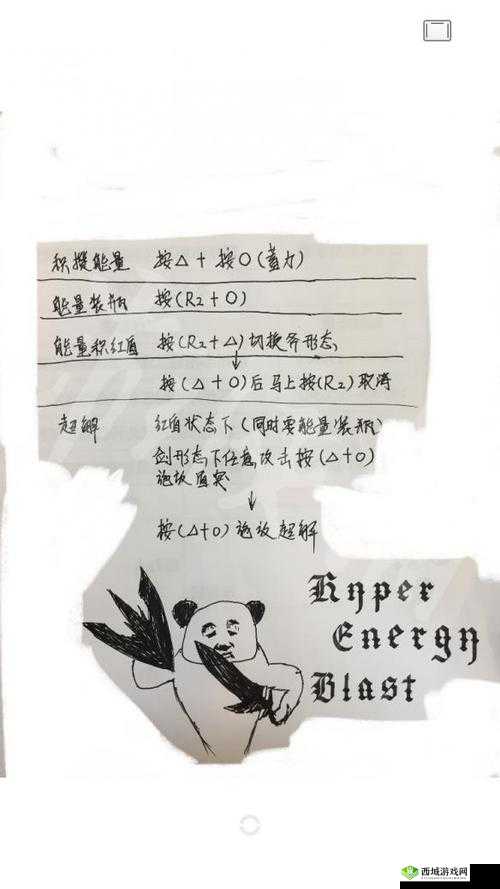 积攒能量 按△+按O(蓄力)
能量装瓶 按(R2+O)
能量积红盾 按(R2+△)切换斧形态
↓
按(△+O)后马上按(R2)取消
超解 红盾状态下(同时要能量装瓶)
剑形态下任意攻击按(△+O)
施放盾突
↓
按(△+O)施放超解
Hyper
Energy
Blast
西城游戏网